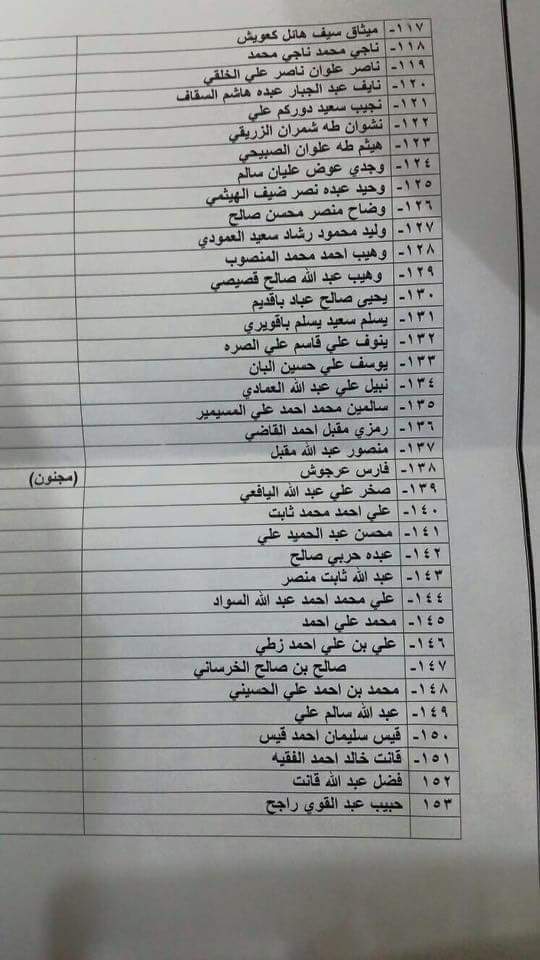 ١١٧- ميثاق سيف هائل كعويش
١١٨- ناجي محمد ناجي محمد
١١٩- ناصر علوان ناصر علي الخلقي
١٢٠- نايف عبد الجبار عبده هاشم السقاف
١٢١- نجيب سعيد دوركم علي
١٢٢- نشوان طه شمران الزريقي
١٢٣- هيثم طه علوان الصبيحي
١٢٤- وجدي عوض عليان سالم
١٢٥- وحيد عبده نصر ضيف الهيثمي
١٢٦- وضاح منصر محسن صالح
١٢٧- وليد محمود رشاد سعيد العمودي
١٢٨- وهيب احمد محمد المنصوب
١٢٩- وهيب عبد الله صالح قصيصي
١٣٠- يحيى صالح عباد باقديم
١٣١- يسلم سعيد يسلم باقويري
١٣٢- ينوف علي قاسم علي الصره
١٣٣- يوسف علي حسين البان
١٣٤- نبيل علي عبد الله العمادي
١٣٥- سالمين محمد احمد علي المسيمير
١٣٦- رمزي مقبل احمد القاضي
١٣٧- منصور عبد الله مقبل
١٣٨- فارس عرجوش (مجنون)
١٣٩- صخر علي عبد الله اليافعي
١٤٠- علي احمد محمد ثابت
١٤١- محسن عبد الحميد علي
١٤٢- عبده حربي صالح
١٤٣- عبد الله ثابت منصر
١٤٤- علي محمد احمد عبد الله السواد
١٤٥- محمد علي احمد
١٤٦- علي بن علي احمد زطي
١٤٧- صالح بن صالح الخرساني
١٤٨- محمد بن احمد علي الحسيني
١٤٩- عبد الله سالم علي
١٥٠- قيس سليمان احمد قيس
١٥١- قانت خالد احمد الفقيه
١٥٢ فضل عبد الله قانت
١٥٣ حبيب عبد القوي راجح